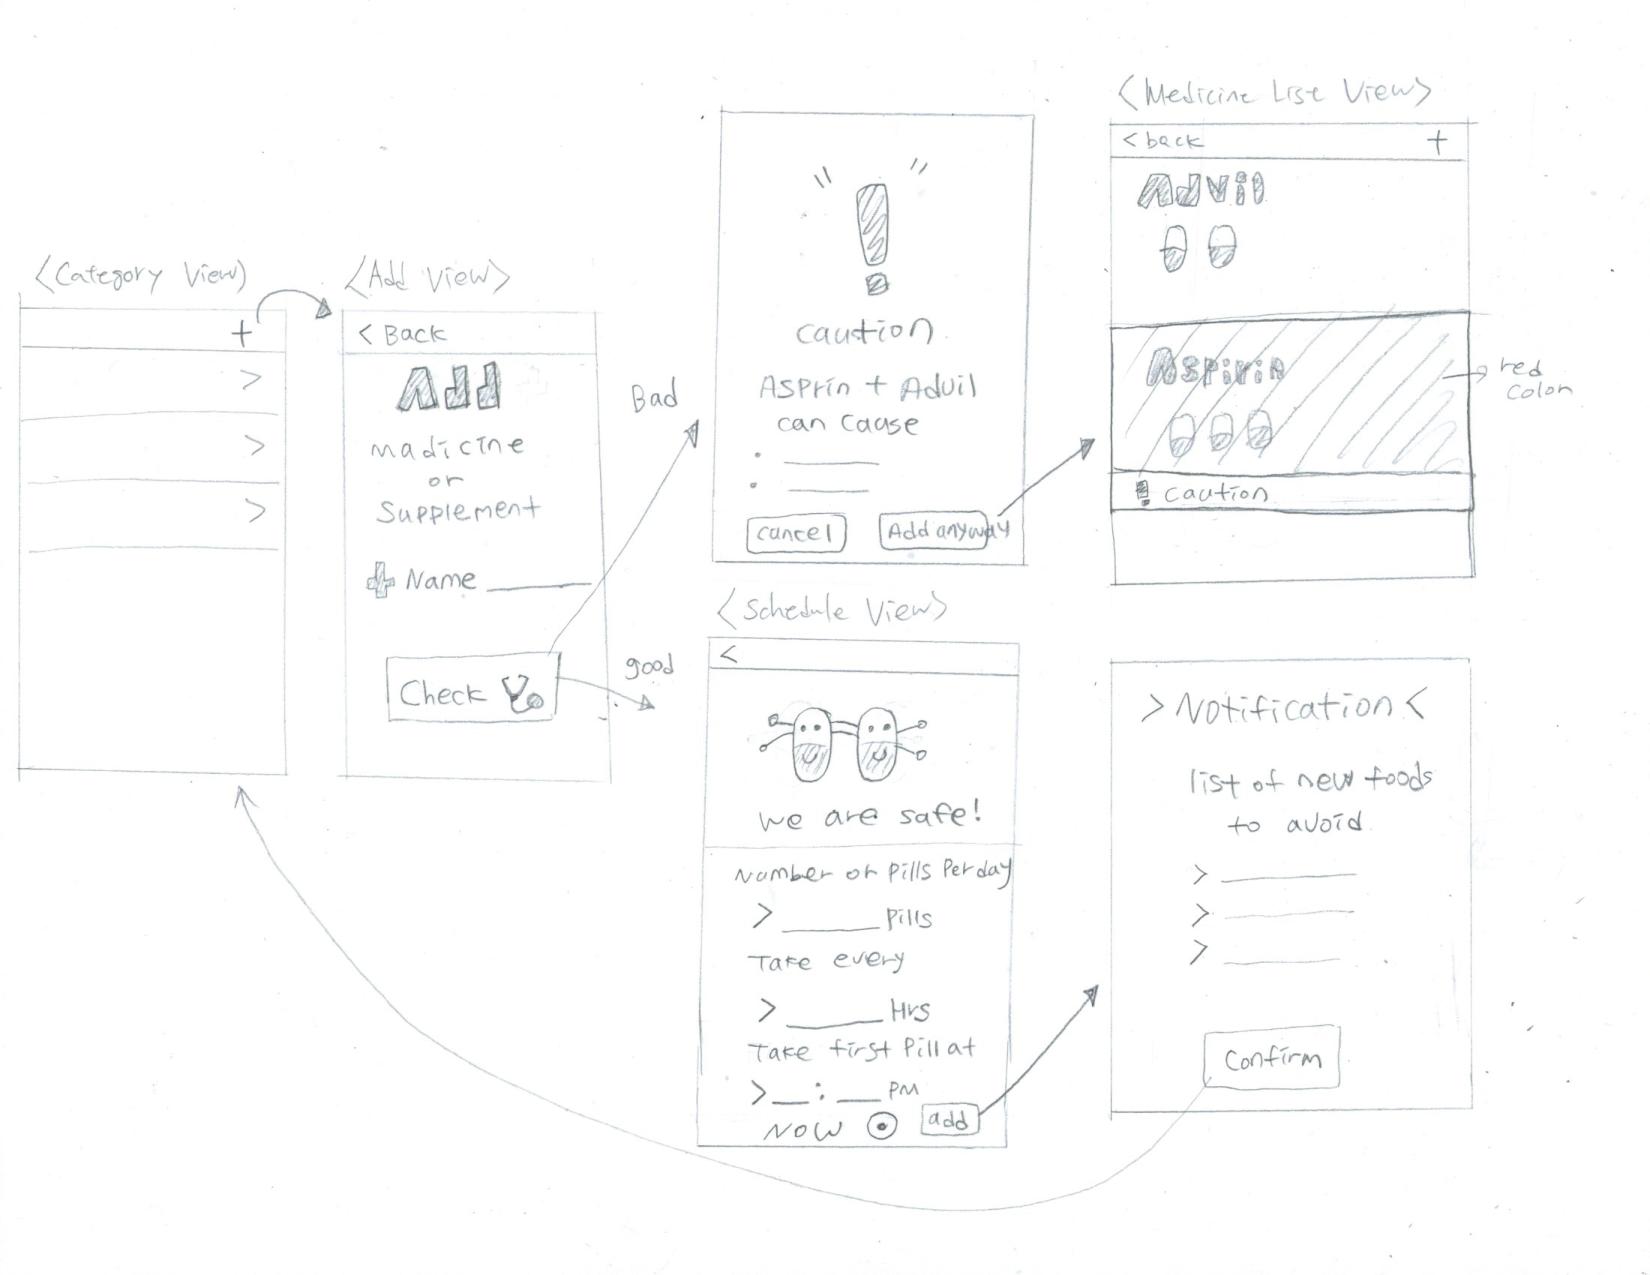 <Category View>
+
>
>
>
<Add View>
< Back
Add
madicine
or
Supplement
Name
Check
Bad
good
!
caution
Asprin + Advil
can cause
cancel
Add anyway
<Medicine List View>
< back +
Advil
Aspirin
! caution
red
colon
<Schedule View>
<
we are safe!
Number of Pills Per day
> ______ Pills
Take every
> ______ Hrs
Take first Pill at
> __ : __ PM
NOW
add
> Notification <
list of new foods
to avoid
> ______
> ______
> ______
Confirm